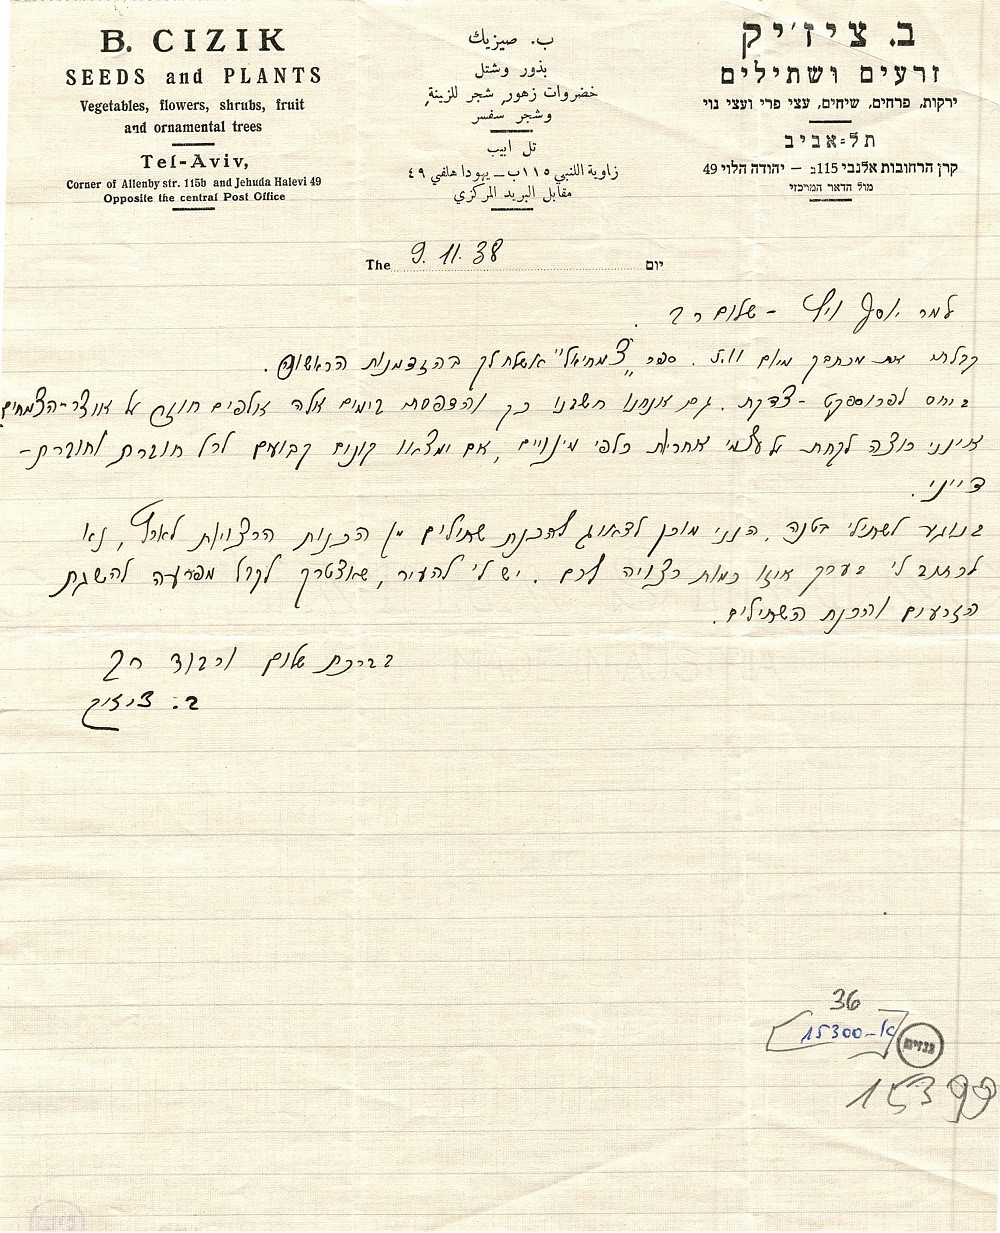 B. CIZIK
SEEDS and PLANTS
Vegetables, flowers, shrubs, fruit
and ornamental trees
Tel-Aviv,
Corner of Allenby str. 115b and Jehuda Halevi 49
Opposite the central Post Office
ب. صيزيك
بذور وشتل
خضروات زهور, شجر للزينة,
وشجر سفسر
تل ابيب
زاوية اللنبي ١١٥ب — يهودا هلفي ٤٩
مقابل البريد المركزي
ב. ציז׳יק
זרעים ושתילים
ירקות, פרחים, שיחים, עצי פרי ועצי נוי
תל=אביב
קרן הרחובות אלנבי 115ב — יהודה הלוי 49
מול הדאר המרכזי
The 9. 11. 38 יום
למר יוסף ויץ – שלום רב.
קבלתי את מכתבך מיום 5.11. ספר "צמחיאל" אשלח לך בהזדמנות הראשונה.
ביחס לפרוספקט – צדקת. גם אנחנו חשבנו כך והדפסת בימים אלה אלפים חוזר על אוצר-הצמחים
אינני רוצה לקחת על עצמי אחריות כלפי מינויים, אם ימצאו קונים קבועים לכל חוברת וחוברת –
דייני.
בנוגע לשתילי בטנה, הנני מוכן לדאוג להכנת שתילים מן הכנות הרצויות לארץ, נא
לכתב לי בערך איזו כמות רצויה לכם. יש לי להעיר, שאצטרך לקבל מפרעה להשגת
הזרעים והכנת השתילים.
בברכת שלום וכבוד רב
ב. ציזיק
36
א-15300
גנזים